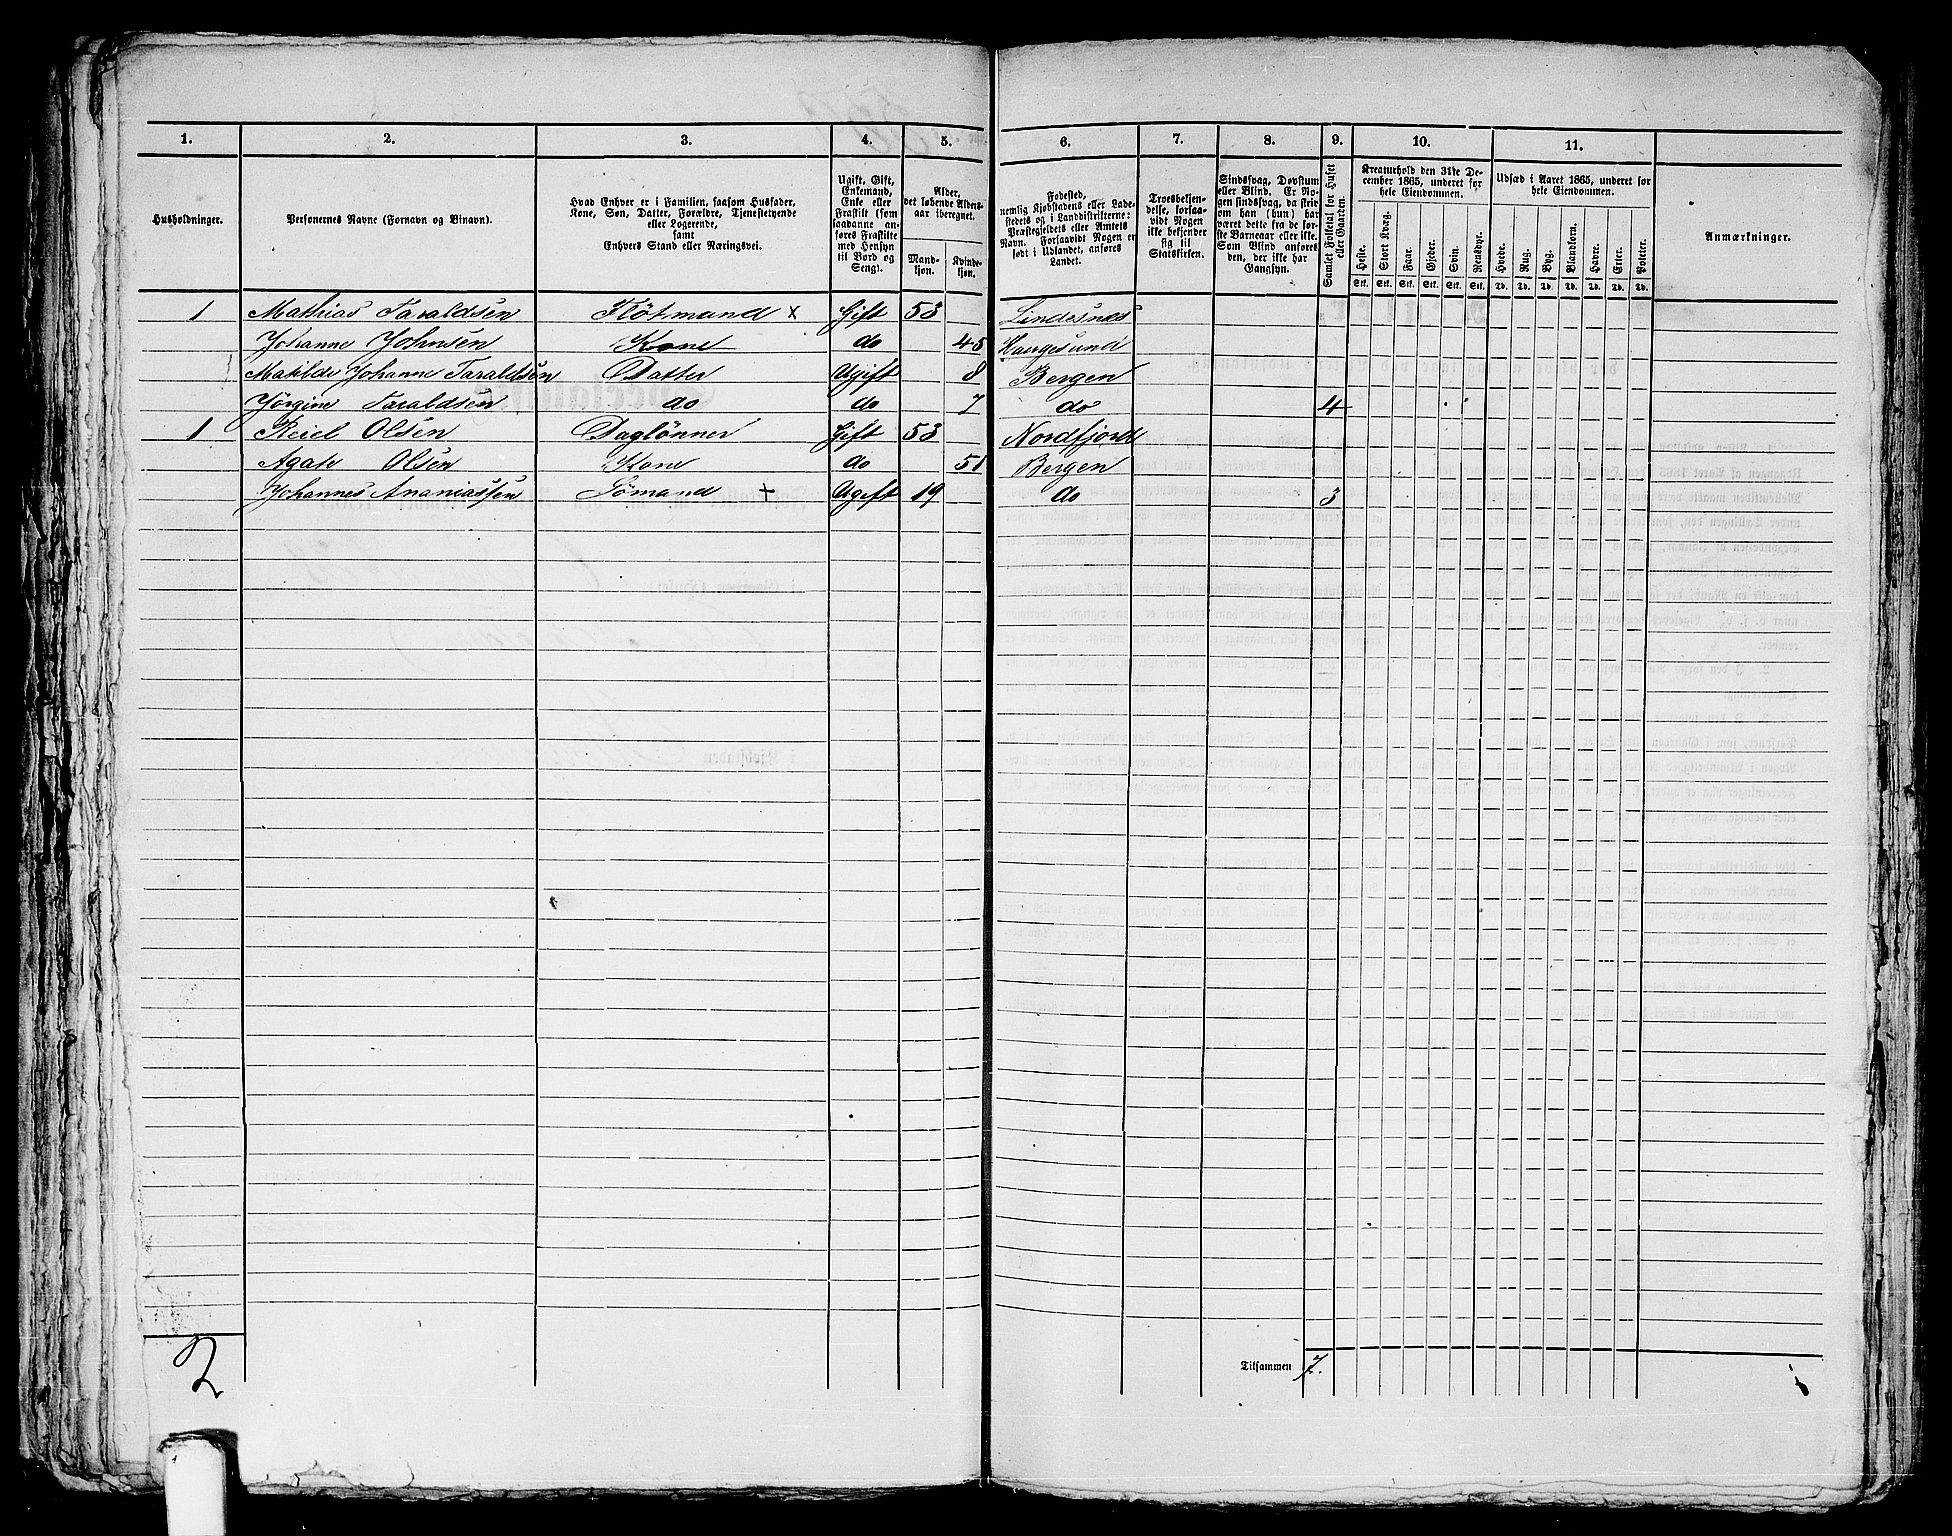 1. 2. 3. 4. 5. 6. 7. 8. 9. 10. 11.
Husholdninger.
Personernes Navne (Fornavn og Binavn).
Hvad Enhver er i Familien, saasom Husfader,
Kone, Søn, Datter, Forældre, Tjenestetyende
eller Logerende,
samt
Enhvers Stand eller Næringsvei.
Ugift, Gift,
Enkemand,
Enke eller
Fraskilt (som
saadanne an-
føres Fraskilte
med Hensyn
til Bord og
Seng).
Alder,
det løbende Alders-
aar iberegnet.
Mand-
kjøn.
Kvinde-
kjøn.
Fødested,
nemlig Kjøbstadens eller Lade-
stedets og i Landdistrikterne:
Præstegjeldets eller Amtets
Navn. Forsaavidt Nogen er
født i Udlandet, anføres
Landet.
Troesbekjen-
delse, forsaa-
vidt Nogen
ikke bekjender
sig til
Statskirken.
Sindssvag, Døvstum
eller Blind. Er No-
gen sindssvag, da skriv
om han (hun) har
været dette fra de før-
ste Barneaar eller ikke.
Som Blind anføres
den, der ikke har
Gangsyn.
Samlet Folketal for Huset
eller Gaarden.
Kreaturhold den 31te De-
cember 1865, underet for
hele Eiendommen.
Heste. Stort Kvæg. Faar. Gjeder. Svin. Rensdyr.
Stk. Stk. Stk. Stk. Stk. Stk.
Udsæd i Aaret 1865, underet for
hele Eiendommen.
Hvede. Rug. Byg. Blandkorn. Havre. Erter. Poteter.
Td. Td. Td. Td. Td. Td. Td.
Anmærkninger.
1 Mathias Taraldsen Flötmand x Gift 53 Lindesnæs
Johanne Johnsen Kone do 45 Haugesund
Matilde Johanne Taraldsen Datter Ugift 8 Bergen
Jörgine Taraldsen do do 7 do 4
1 Reiel Olsen Daglönner Gift 53 Nordfjord
Agate Olsen Kone do 51 Bergen
Johannes Ananiassen Sömand + Ugift 19 do 3
2
Tilsammen 7.